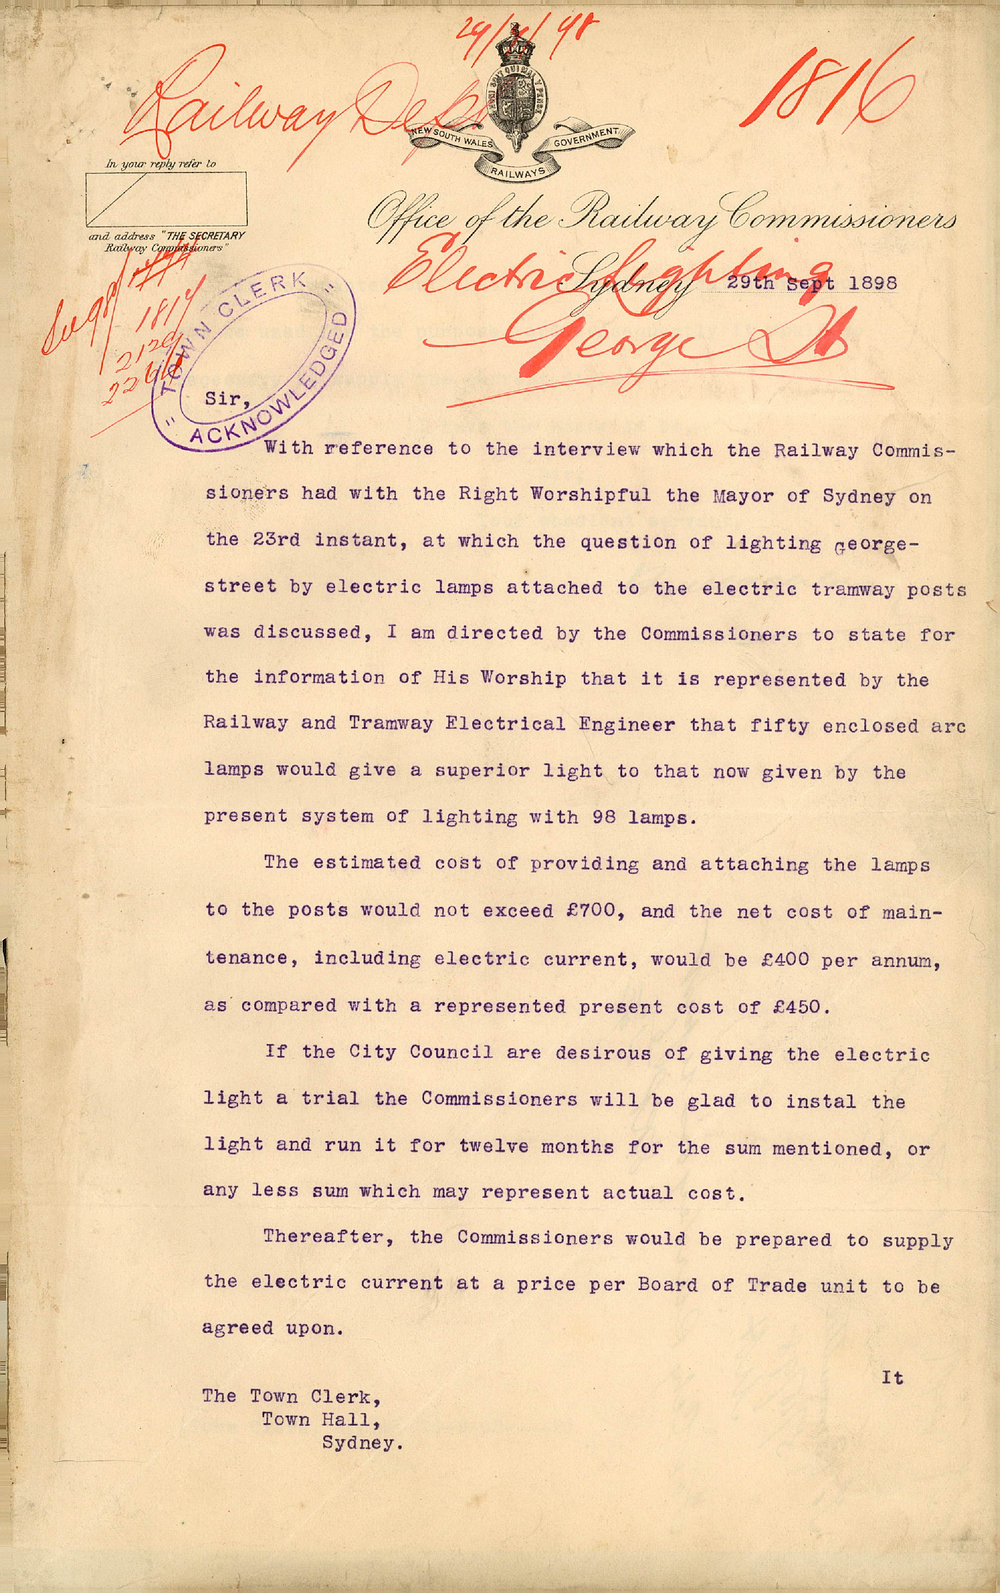 29/9/98
Railway Dept
1816
HONI SOIT QUI MAL Y PENSE
NEW SOUTH WALES GOVERNMENT
RAILWAYS
In your reply refer to
and address "THE SECRETARY
Railway Commissioners"
Office of the Railway Commissioners
Electric Lighting
Sydney 29th Sept 1898
George St
1817
2129
"TOWN CLERK"
ACKNOWLEDGED
Sir,
With reference to the interview which the Railway Commis-
sioners had with the Right Worshipful the Mayor of Sydney on
the 23rd instant, at which the question of lighting George-
street by electric lamps attached to the electric tramway posts
was discussed, I am directed by the Commissioners to state for
the information of His Worship that it is represented by the
Railway and Tramway Electrical Engineer that fifty enclosed arc
lamps would give a superior light to that now given by the
present system of lighting with 98 lamps.
The estimated cost of providing and attaching the lamps
to the posts would not exceed £700, and the net cost of main-
tenance, including electric current, would be £400 per annum,
as compared with a represented present cost of £450.
If the City Council are desirous of giving the electric
light a trial the Commissioners will be glad to instal the
light and run it for twelve months for the sum mentioned, or
any less sum which may represent actual cost.
Thereafter, the Commissioners would be prepared to supply
the electric current at a price per Board of Trade unit to be
agreed upon.
It
The Town Clerk,
Town Hall,
Sydney.